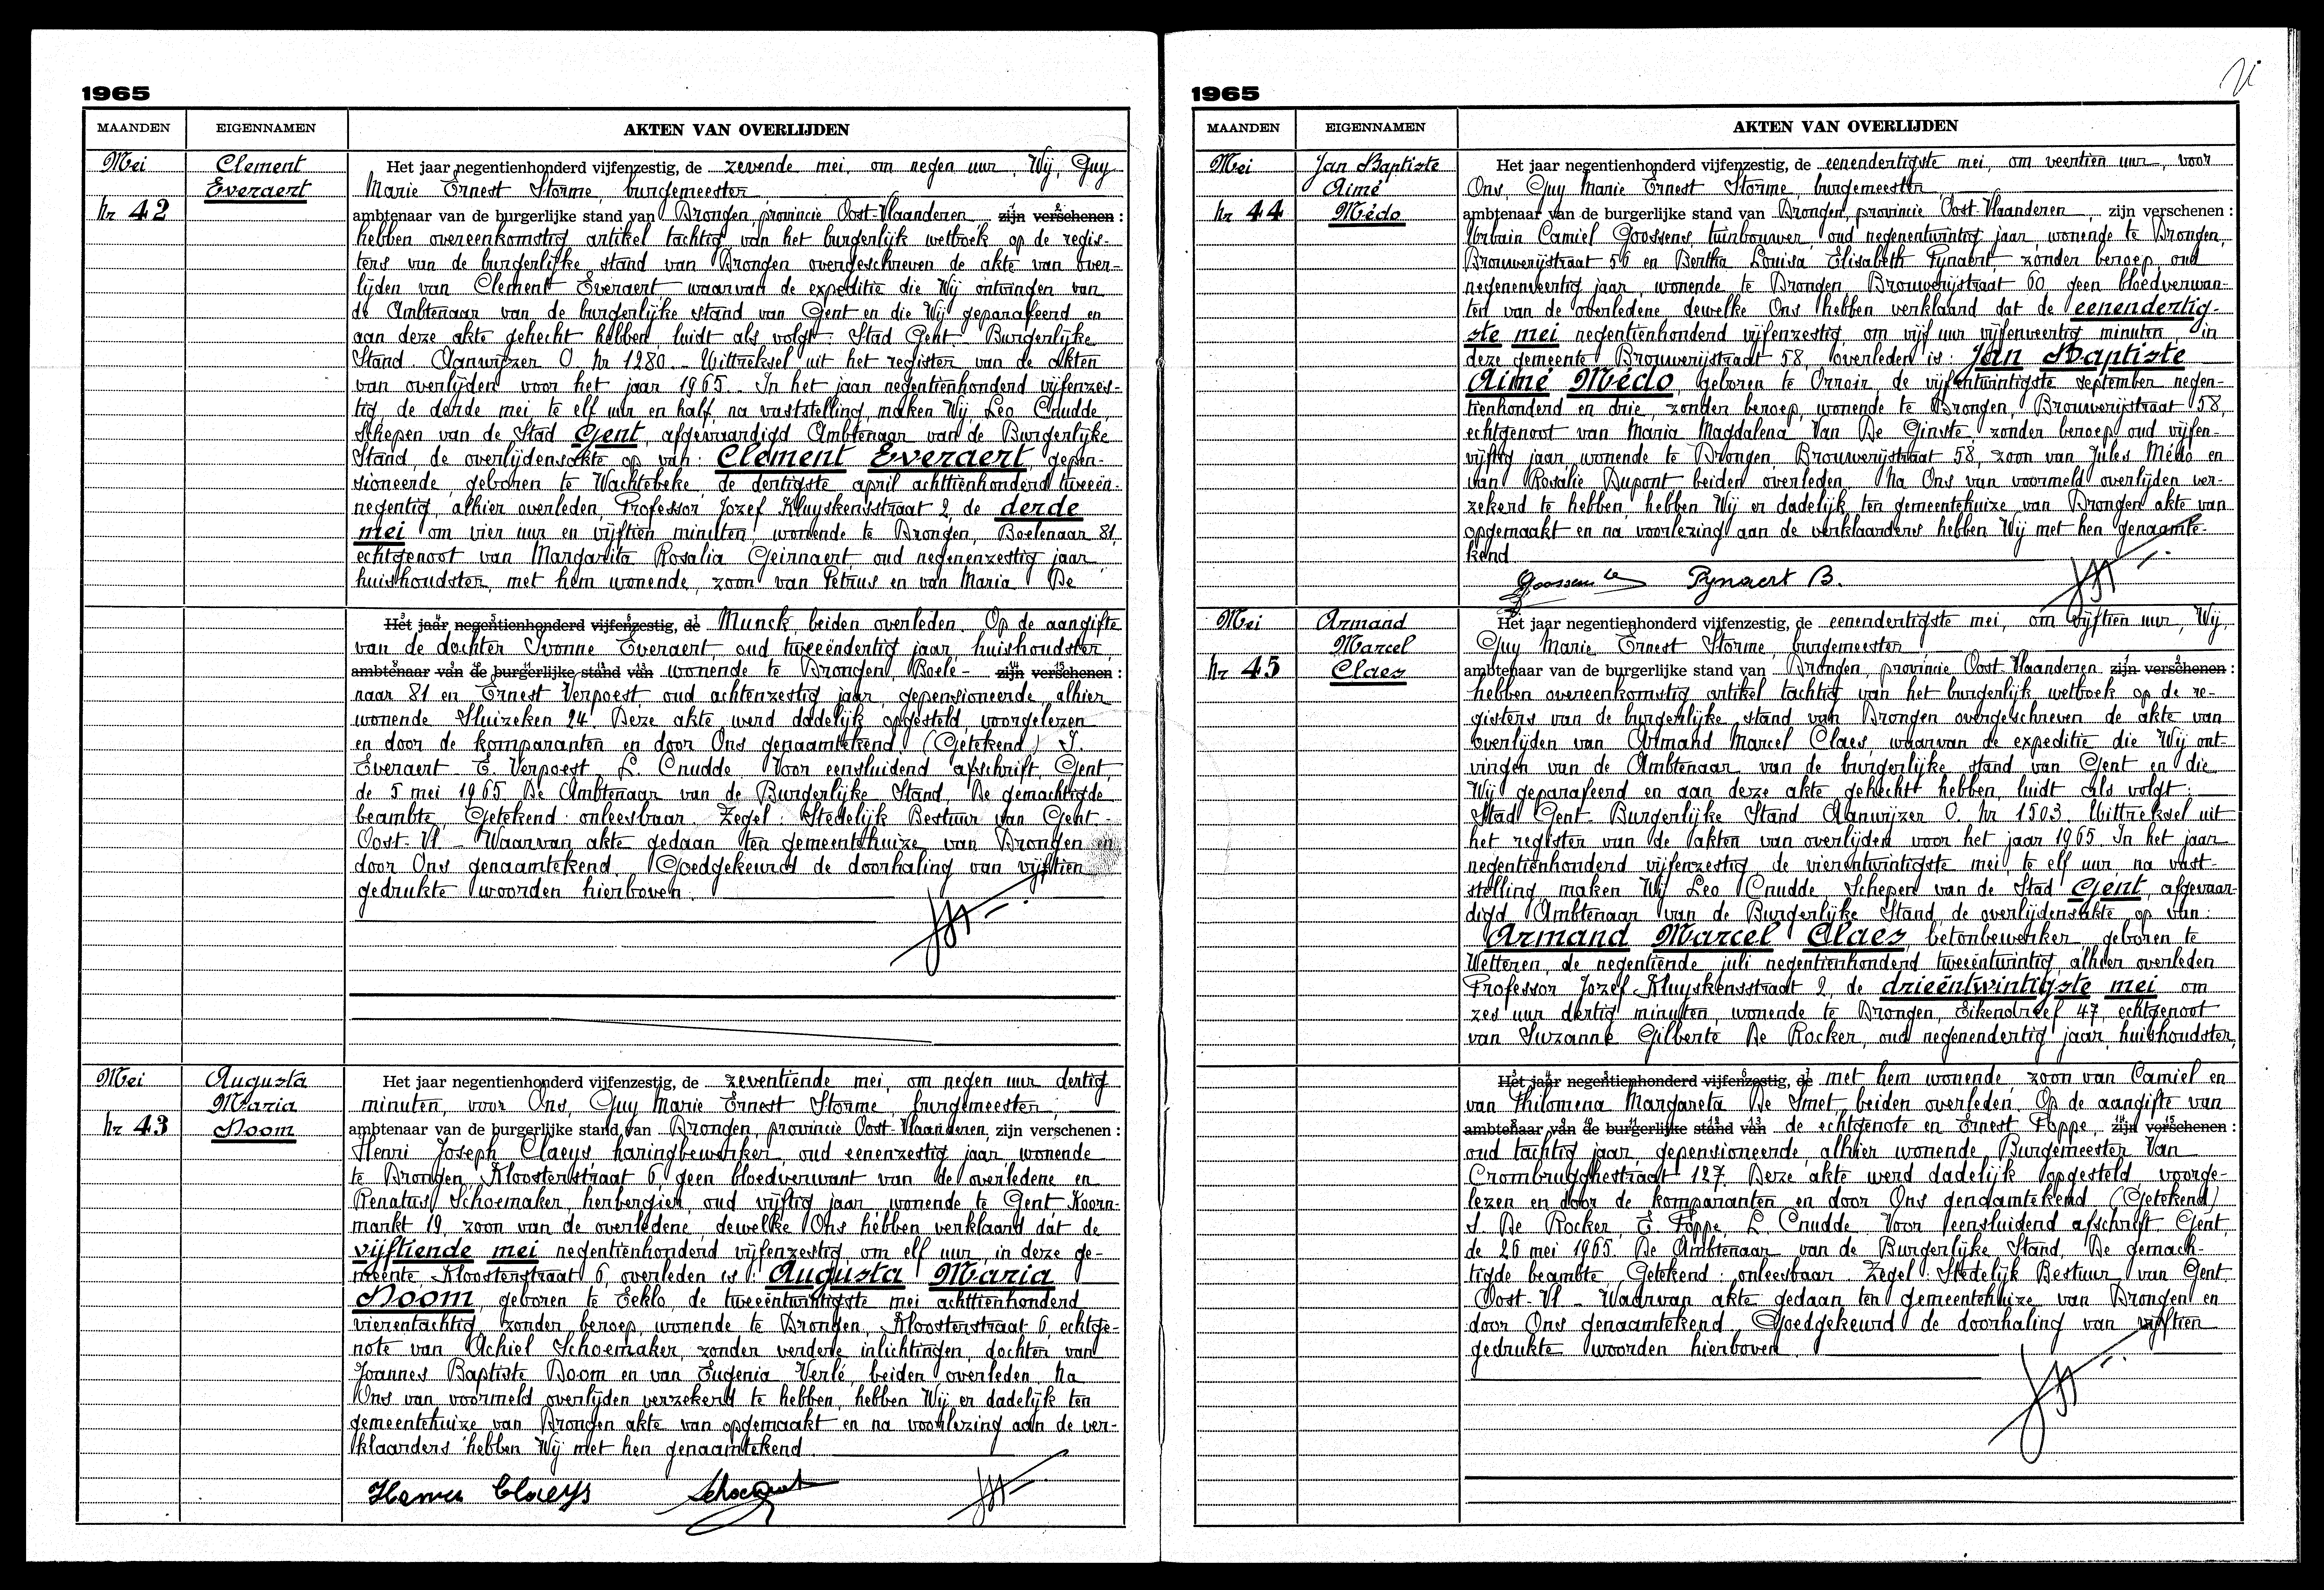 1965
MAANDEN EIGENNAMEN AKTEN VAN OVERLIJDEN
Mei
nr 42
Clement
Everaert
Het jaar negentienhonderd vijfenzestig, de zevende mei, om negen uur, Wij, Guy
Marie Ernest Storme, burgemeester
ambtenaar van de burgerlijke stand van Drongen, provincie Oost-Vlaanderen zijn verschenen :
hebben overeenkomstig artikel tachtig van het burgerlijk wetboek op de regis-
ters van de burgerlijke stand van Drongen overgeschreven de akte van over-
lijden van Clement Everaert waarvan de expeditie die Wij ontvingen van
de Ambtenaar van de burgerlijke stand van Gent en die Wij geparafeerd en
aan deze akte gehecht hebben, luidt als volgt: Stad Gent - Burgerlijke
Stand. Aanwijzer O. nr 1280. - Uittreksel uit het register van de akten
van overlijden voor het jaar 1965. - In het jaar negentienhonderd vijfenzes-
tig, de derde mei, te elf uur en half, na vaststelling, maken Wij Leo Cnudde,
Schepen van de Stad Gent, afgevaardigd Ambtenaar van de Burgerlijke
Stand, de overlijdensakte op van: Clement Everaert, gepen-
sioneerde, geboren te Wachtebeke, de dertigste april achttienhonderd tweeën-
negentig, alhier overleden, Professor Jozef Kluyskensstraat 2, de derde
mei om vier uur en vijftien minuten, wonende te Drongen, Boelenaar 81,
echtgenoot van Margarita Rosalia Geirnaert, oud negenenzestig jaar,
huishoudster, met hem wonende, zoon van Petrus en van Maria De
Het jaar negentienhonderd vijfenzestig, de Munck, beiden overleden. Op de aangifte
van de dochter Ivonne Everaert, oud tweeëndertig jaar, huishoudster,
ambtenaar van de burgerlijke stand van wonende te Drongen, Boele- zijn verschenen :
naar 81 en Ernest Verpoest, oud achtenzestig jaar, gepensioneerde, alhier
wonende Sluizeken 24. Deze akte werd dadelijk opgesteld, voorgelezen
en door de komparanten en door Ons genaamtekend. (Getekend) I.
Everaert - E. Verpoest L. Cnudde. Voor eensluidend afschrift, Gent,
de 5 mei 1965. De Ambtenaar van de Burgerlijke Stand, De gemachtigde
beambte, Getekend : onleesbaar. Zegel : Stedelijk Bestuur van Gent -
Oost-Vl. - Waarvan akte gedaan ten gemeentehuize van Drongen en
door Ons genaamtekend. Goedgekeurd de doorhaling van vijftien
gedrukte woorden hierboven.
Mei
nr 43
Augusta
Maria
Doom
Het jaar negentienhonderd vijfenzestig, de zeventiende mei, om negen uur dertig
minuten, voor Ons, Guy Marie Ernest Storme, burgemeester,
ambtenaar van de burgerlijke stand van Drongen, provincie Oost-Vlaanderen, zijn verschenen :
Henri Joseph Claeys haringbewerker, oud eenenzestig jaar, wonende
te Drongen, Kloosterstraat 6, geen bloedverwant van de overledene en
Renatus Schoemaker, herbergier, oud vijftig jaar, wonende te Gent, Koorn-
markt 19, zoon van de overledene, dewelke Ons hebben verklaard dat de
vijftiende mei negentienhonderd vijfenzestig, om elf uur, in deze ge-
meente, Kloosterstraat 6, overleden is : Augusta Maria
Doom, geboren te Eeklo, de tweeëntwintigste mei achttienhonderd
vierentachtig, zonder beroep, wonende te Drongen, Kloosterstraat 6, echtge-
note van Achiel Schoemaker, zonder verdere inlichtingen, dochter van
Joannes Baptiste Doom en van Eugenia Verlé, beiden overleden. Na
Ons van voormeld overlijden verzekerd te hebben, hebben Wij er dadelijk ten
gemeentehuize van Drongen akte van opgemaakt en na voorlezing aan de ver-
klaarders hebben Wij met hen genaamtekend.
Claeys
1965
MAANDEN EIGENNAMEN AKTEN VAN OVERLIJDEN
Mei
nr 44
Jan Baptiste
Aimé
Médo
Het jaar negentienhonderd vijfenzestig, de eenendertigste mei, om veertien uur, voor
Ons, Guy Marie Ernest Storme, burgemeester
ambtenaar van de burgerlijke stand van Drongen, provincie Oost-Vlaanderen, zijn verschenen :
Urbain Camiel Goossens, tuinbouwer, oud negenentwintig jaar, wonende te Drongen,
Brouwerijstraat 56 en Bertha Louisa Elisabeth Pynaert, zonder beroep, oud
negenenveertig jaar, wonende te Drongen, Brouwerijstraat 60, geen bloedverwan-
ten van de overledene, dewelke Ons hebben verklaard dat de eenendertig-
ste mei negentienhonderd vijfenzestig, om vijf uur vijfenveertig minuten, in
deze gemeente, Brouwerijstraat 58, overleden is: Jan Baptiste
Aimé Médo, geboren te Orroir, de vijfentwintigste september negen-
tienhonderd en drie, zonder beroep, wonende te Drongen, Brouwerijstraat 58,
echtgenoot van Maria Magdalena Van De Ginste, zonder beroep, oud vijfen-
vijftig jaar, wonende te Drongen, Brouwerijstraat 58, zoon van Jules Médo en
van Rosalie Dupont, beiden overleden. Na Ons van voormeld overlijden ver-
zekerd te hebben, hebben Wij er dadelijk ten gemeentehuize van Drongen akte van
opgemaakt en na voorlezing aan de verklaarders hebben Wij met hen genaamte-
kend.
Goossens Pynaert B.
Mei
nr 45
Armand
Marcel
Claes
Het jaar negentienhonderd vijfenzestig, de eenendertigste mei, om vijftien uur, Wij,
Guy Marie Ernest Storme, burgemeester
ambtenaar van de burgerlijke stand van Drongen, provincie Oost-Vlaanderen zijn verschenen :
hebben overeenkomstig artikel tachtig van het burgerlijk wetboek op de re-
gisters van de burgerlijke stand van Drongen overgeschreven de akte van
overlijden van Armand Marcel Claes, waarvan de expeditie die Wij ont-
vingen van de Ambtenaar van de burgerlijke stand van Gent en die
Wij geparafeerd en aan deze akte gehecht hebben, luidt als volgt :
Stad Gent. Burgerlijke Stand Aanwijzer O. nr 1503. Uittreksel uit
het register van de akten van overlijden voor het jaar 1965. In het jaar
negentienhonderd vijfenzestig de vierentwintigste mei, te elf uur, na vast-
stelling, maken Wij Leo Cnudde, Schepen van de Stad Gent, afgevaar-
digd Ambtenaar van de Burgerlijke Stand, de overlijdensakte op van :
Armand Marcel Claes, betonbewerker, geboren te
Wetteren, de negentiende juli negentienhonderd tweeëntwintig, alhier overleden
Professor Jozef Kluyskensstraat 2, de drieëntwintigste mei om
zes uur dertig minuten, wonende te Drongen, Eikendreef 47, echtgenoot
van Suzanne Gilberte De Rocker, oud negenendertig jaar, huishoudster,
Het jaar negentienhonderd vijfenzestig, de met hem wonende, zoon van Camiel en
van Philomena Margareta De Smet, beiden overleden. Op de aangifte van
ambtenaar van de burgerlijke stand van de echtgenote en Ernest Foppe, zijn verschenen :
oud tachtig jaar, gepensioneerde, alhier wonende Burgemeester Van
Crombrugghestraat 127. Deze akte werd dadelijk opgesteld, voorge-
lezen en door de komparanten en door Ons genaamtekend (Getekend)
S. De Rocker, E. Foppe, L. Cnudde. Voor eensluidend afschrift, Gent,
de 26 mei 1965. De Ambtenaar van de Burgerlijke Stand, De gemach-
tigde beambte, Getekend : onleesbaar. Zegel : Stedelijk Bestuur van Gent
Oost-Vl. - Waarvan akte gedaan ten gemeentehuize van Drongen en
door Ons genaamtekend. Goedgekeurd de doorhaling van vijftien
gedrukte woorden hierboven.